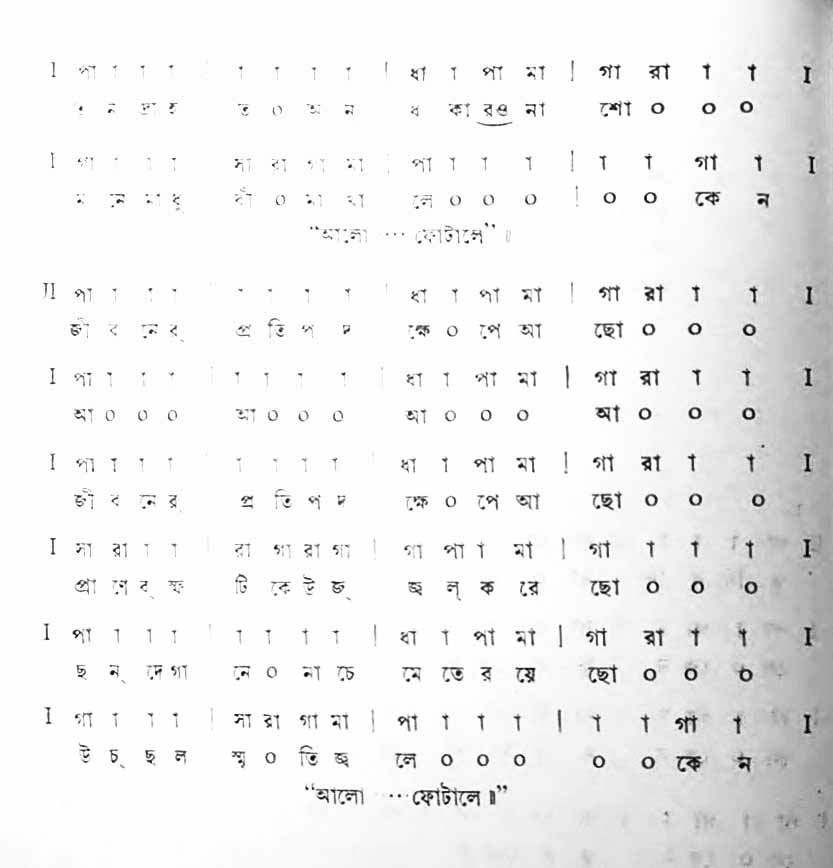 I পা া া া | া া া া | ধা া পা মা | গা রা া া I
ন দ্রা হ ত ০ অ ন ধ কা রও না শো ০ ০ ০
I গা া া া সা রা গা মা | পা া া া | া া গা া I
ম নে মা ধু রী ০ মা খা লে ০ ০ ০ | ০ ০ কে ন
“আলো ··· ফোটালে” ॥
II পা া া া | া া া া | ধা া পা মা | গা রা া া I
জী ব নে র্ প্র তি প দ ক্ষে ০ পে আ ছো ০ ০ ০
I পা া া া | া া া া | ধা া পা মা | গা রা া া I
আ ০ ০ ০ আ ০ ০ ০ আ ০ ০ ০ আ ০ ০ ০
I পা া া া | া া া া | ধা া পা মা | গা রা া া I
জী ব নে র্ প্র তি প দ ক্ষে ০ পে আ ছো ০ ০ ০
I সা রা া া | রা গা রা গা | গা পা া মা | গা া া া I
প্রা ণে র্ স্ফ টি কে উ জ্ জ্ব ল্ ক রে ছো ০ ০ ০
I পা া া া | া া া া | ধা া পা মা | গা রা া া I
ছ ন্ দে গা নে ০ না চে মে তে র য়ে ছো ০ ০ ০
I গা া া া | সা রা গা মা | পা া া া | া া গা া I
উ চ্ ছ ল স্মৃ ০ তি জ্ব লে ০ ০ ০ ০ ০ কে ন
“আলো ··· ফোটালে ॥”